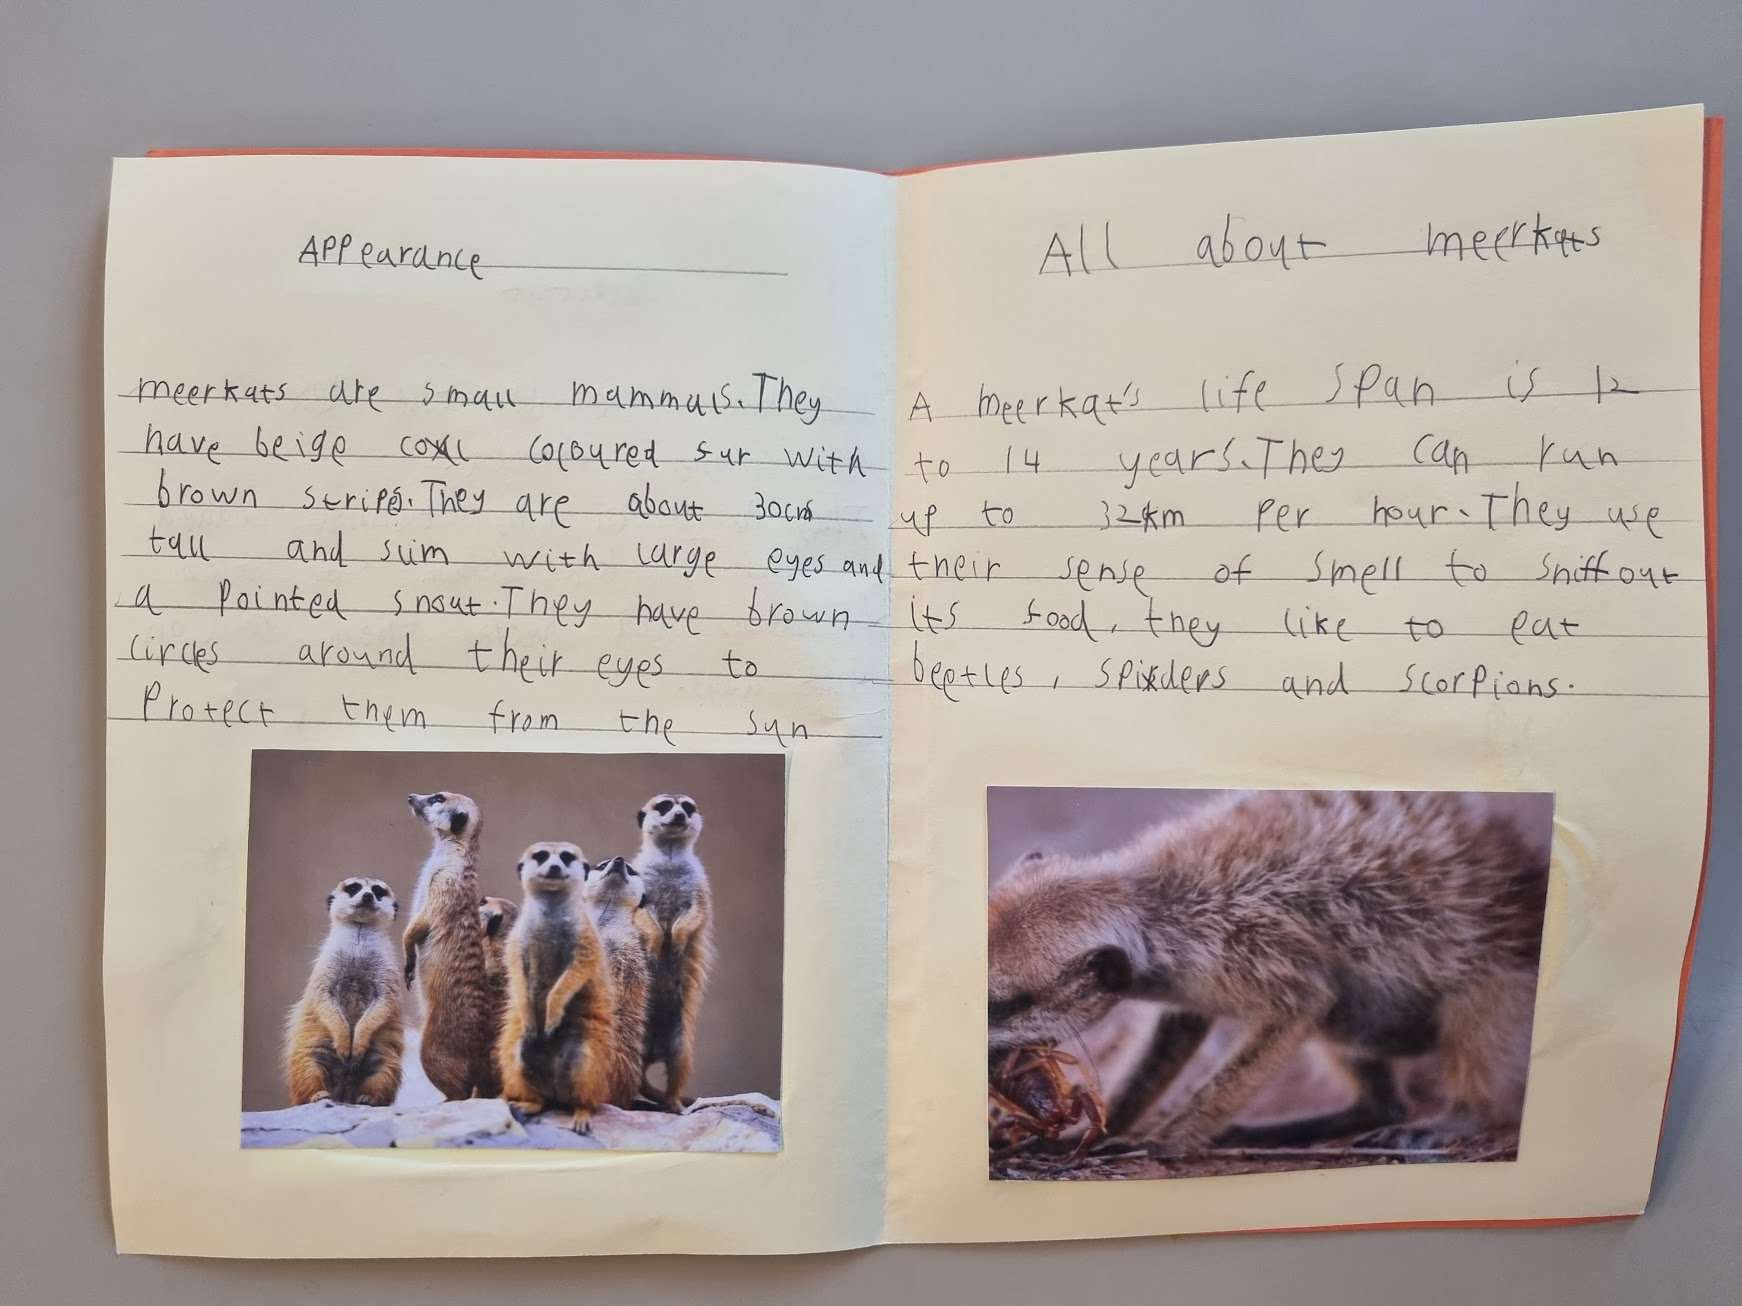 Appearance
meerkats are small mammals. They
have beige coloured fur with
brown stripes. They are about 30cm
tall and slim with large eyes and
a pointed snout. They have brown
circles around their eyes to
protect them from the sun
All about meerkats
A meerkat's life span is 12
to 14 years. They can run
up to 32km per hour. They use
their sense of smell to sniff out
its food, they like to eat
beetles, spiders and scorpions.